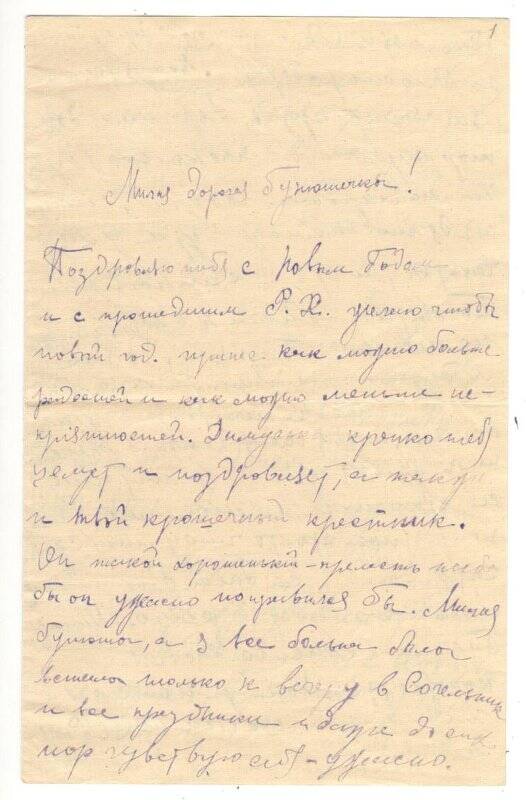 1
Милая дорогая Бунюшечка!
Поздравляю тебя с новым Годом
и с прошедшим Р. Х. желаю чтобы
новый год принес как можно больше
радостей и как можно меньше не-
приятностей. крепко тебя
целует и поздравляет, а также
и твой крошечный крестник.
Он такой хорошенький - прелесть тебе
бы он ужасно понравился бы. Милая
бунюша, а я все больна была
встала только к вечеру в Сочельник
и все праздники и даже до сих
пор чувствую себя - ужасно.